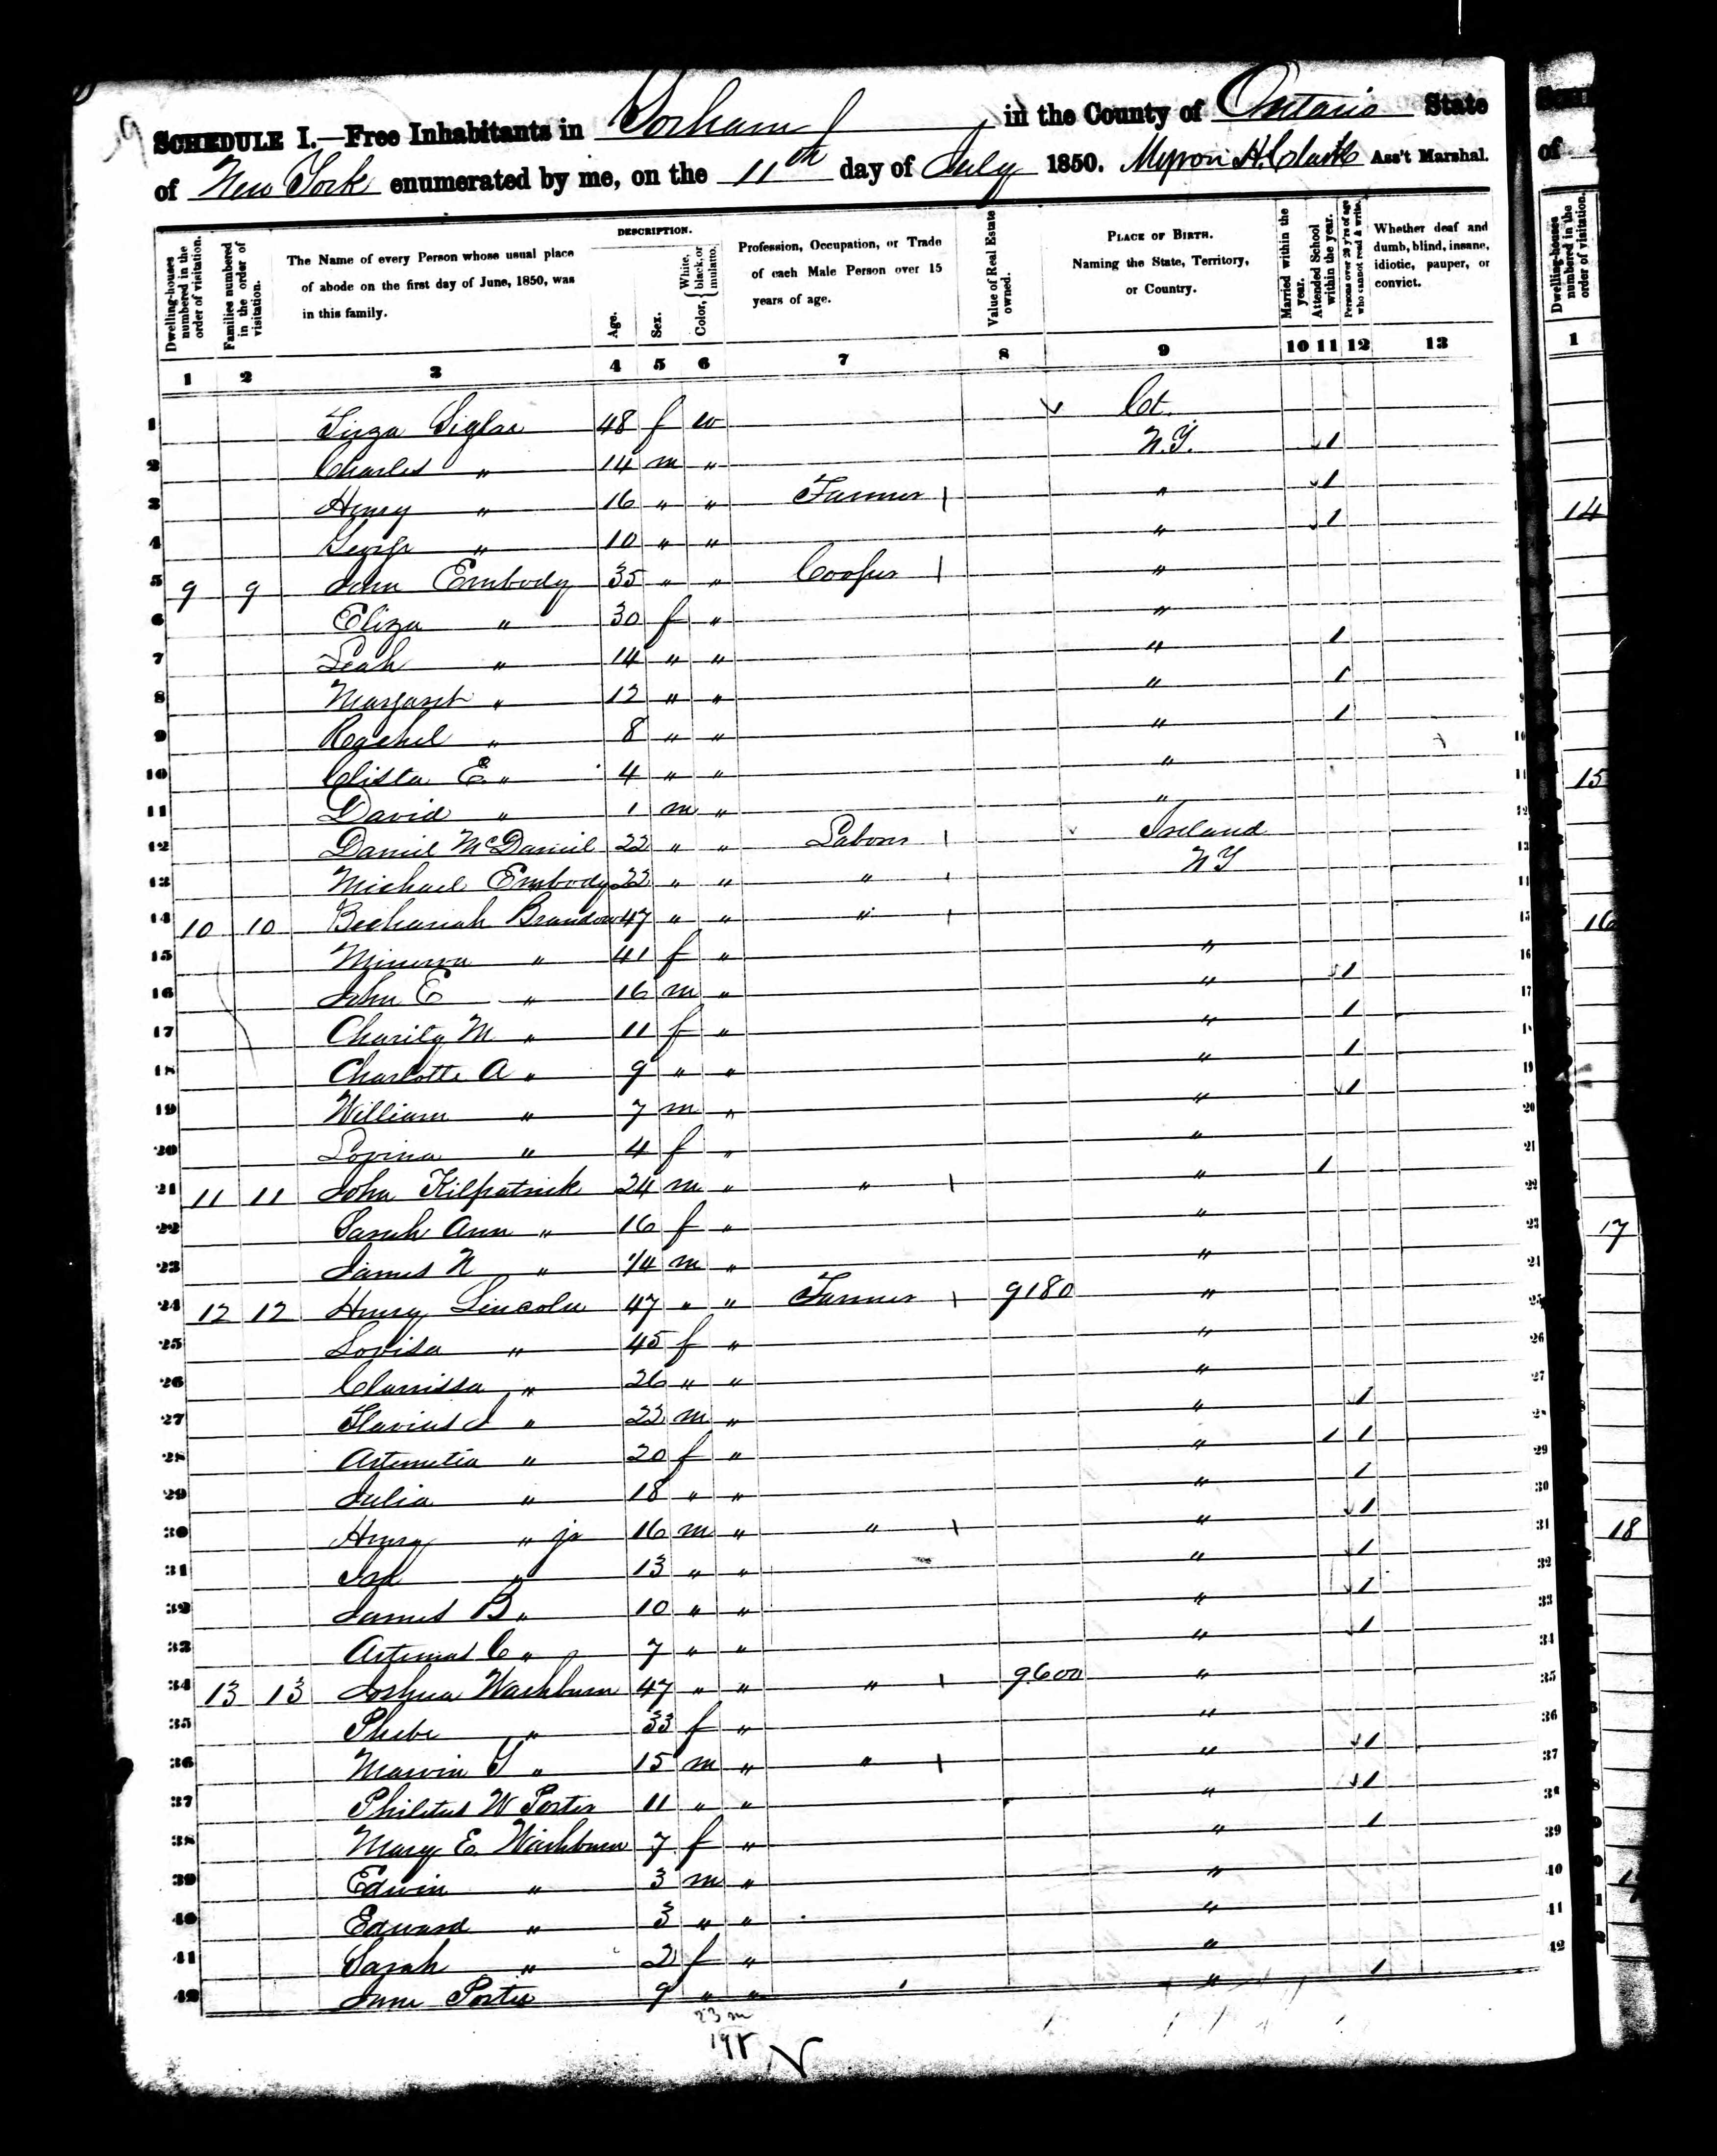 SCHEDULE I.—Free Inhabitants in Gorham in the County of Ontario State
of New York enumerated by me, on the 11th day of July 1850. Myron H. Clark Ass't Marshal.
Dwelling-houses numbered in the order of visitation.
Families numbered in the order of visitation.
The Name of every Person whose usual place of abode on the first day of June, 1850, was in this family.
DESCRIPTION.
Age.
Sex.
Color, { White, black, or mulatto.
Profession, Occupation, or Trade of each Male Person over 15 years of age.
Value of Real Estate owned.
PLACE OF BIRTH. Naming the State, Territory, or Country.
Married within the year.
Attended School within the year.
Persons over 20 y'rs of age who cannot read & write.
Whether deaf and dumb, blind, insane, idiotic, pauper, or convict.
1 2 3 4 5 6 7 8 9 10 11 12 13
1 48 f w Ct.
2 Charles " 14 m " N.Y. 1
3 Henry " 16 " " Farmer " 1
4 George " 10 " " " 1
5 9 9 John Embody 35 " " Cooper "
6 Eliza " 30 f " "
7 Leah " 14 " " " 1
8 Margaret " 12 " " " 1
9 Rachel " 8 " " " 1
10 Clista E " 4 " " "
11 David " 1 m " "
12 Daniel McDaniel 22 " " Labor Ireland
13 Michael Embody 22 " " " NY
14 10 10 Brandow 47 " " "
15 Minerva " 41 f " "
16 John E " 16 m " " 1
17 Charity M " 11 f " " 1
18 Charlotte A " 9 " " " 1
19 William " 7 m " " 1
20 Lovina " 4 f " "
21 11 11 John Kilpatrick 24 m " " " 1
22 Sarah Ann " 16 f " "
23 James N " 1/4 m " "
24 12 12 Henry Lincoln 47 " " Farmer 9180 "
25 Lovisa " 45 f " "
26 Clarrissa " 26 " " "
27 Flavius J " 22 m " " 1
28 Artemetia " 20 f " " 1 1
29 Julia " 18 " " " 1
30 Henry " jr 16 m " " " 1
31 Ira " 13 " " " 1
32 James B " 10 " " " 1
33 Artemas C " 7 " " " 1
34 13 13 Joshua Washburn 47 " " " 9600 "
35 Phebe " 33 f " "
36 Marvin " 15 m " " " 1
37 Philetus W Porter 11 " " " 1
38 Mary E. Washburn 7 f " " 1
39 Edwin " 3 m " "
40 Edward " 3 " " "
41 Sarah " 2 f " "
42 Jane Porter 9 " " " 1
23 m
19 f
14
15
16
17
18